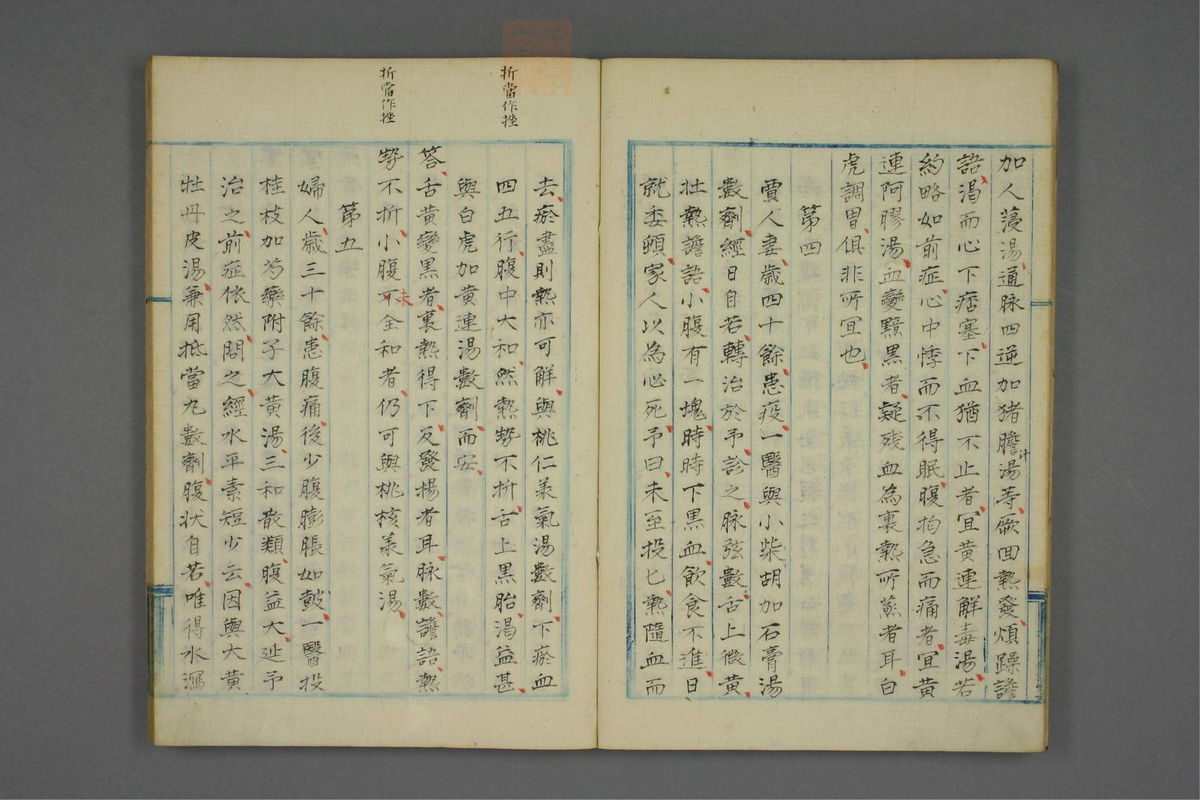 加人薓湯通脉四逆加猪膽汁湯等厥回熱發煩躁譫
語渴而心下痞塞下血猶不止者宜黄連解毒湯若
約略如前症心中悸而不得眠腹拘急而痛者宜黄
連阿膠湯血變黯黒者疑残血為裏熱所蒸者耳白
虎調胃俱非所宜也
第四
賈人妻歳四十餘患疫一醫與小柴胡加石膏湯
數劑經日自若轉治於予診之脉弦數舌上微黄
壮熱譫語小腹有一塊時時下黒血飲食不進日
就委頓家人以為必死予曰未至投匕熱隨血而
去瘀盡則熱亦可解與桃仁羕氣湯數劑下瘀血
四五行腹中大和然熱勢不折舌上黒胎渴益甚
與白虎加黄連湯數劑而安
答舌黄變黒者裏熱得下反發揚者耳脉數譫語熱
勢不折小腹未全和者仍可與桃核羕氣湯
第五
婦人歳三十餘患腹痛後少腹膨脹如皷一醫投
桂枝加芍藥附子大黄湯三和散類腹益大延予
治之前症依然問之經水平素短少云因與大黄
牡丹皮湯兼用抵當丸數劑腹状自若唯得水瀉
折當作挫
折當作挫